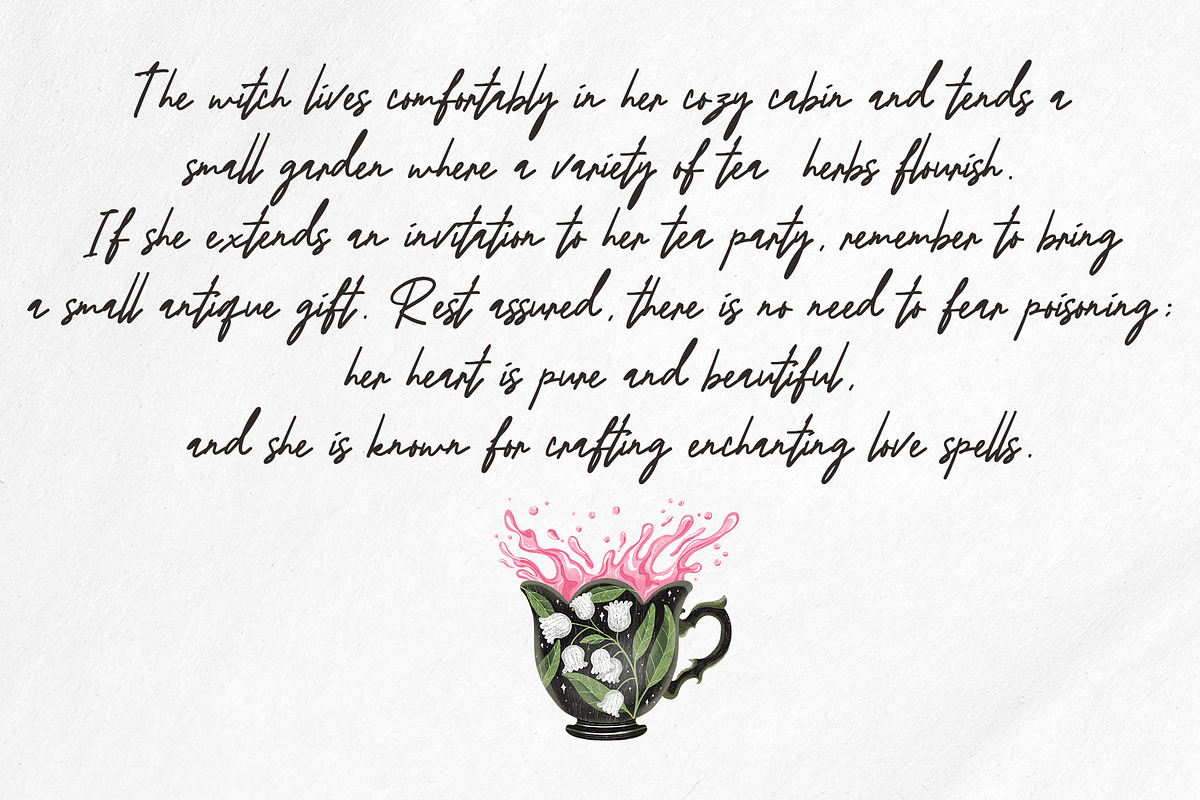 The witch lives comfortably in her cozy cabin and tends a
small garden where a variety of tea herbs flourish.
If she extends an invitation to her tea party, remember to bring
a small antique gift. Rest assured, there is no need to fear poisoning:
her heart is pure and beautiful,
and she is known for crafting enchanting love spells.